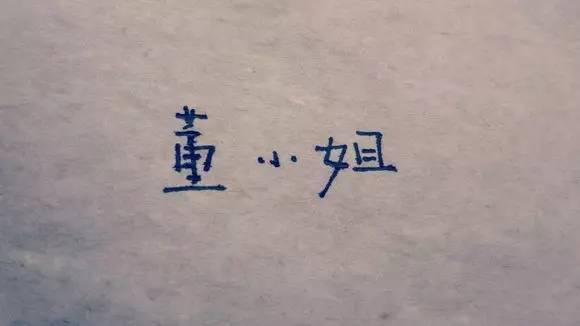 董小姐